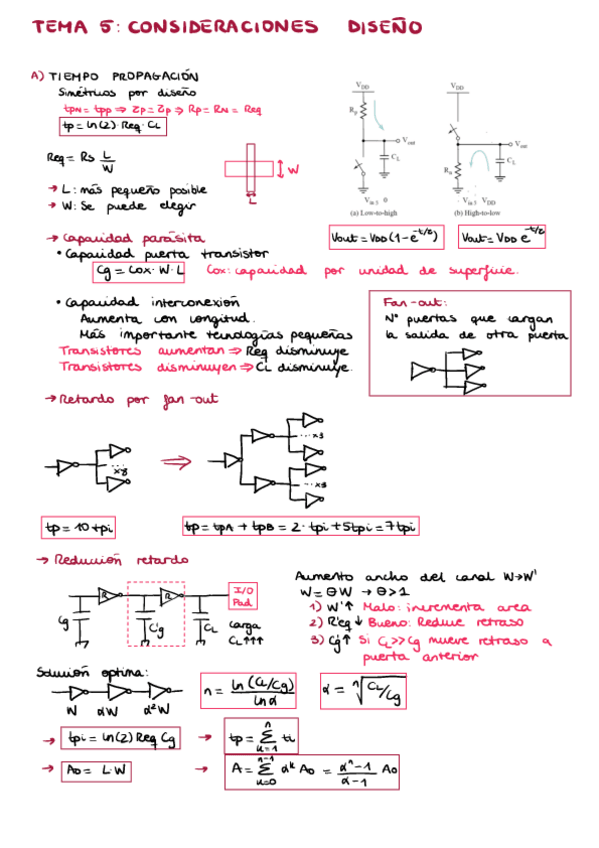 TEMA 5: CONSIDERACIONES DISEÑO
A) TIEMPO PROPAGACIÓN
Simétricos por diseño
tpN = tpp ⇒ Zp = Zp ⇒ Rp = RN = Req
tp = ln(2) · Req · CL
Req = Rs L/W
→ L: más pequeño posible
→ W: Se puede elegir
W
L
VDD
Rp
Vout
CL
Vin 0
(a) Low-to-high
VDD
Vout
Rn
CL
Vin VDD
(b) High-to-low
Vout = VDD (1-e^-t/z)
Vout = VDD e^-t/z
→ Capacidad parásita
• Capacidad puerta transistor
Cg = Cox · W · L
Cox: capacidad por unidad de superficie.
• Capacidad interconexión
Aumenta con longitud.
Más importante tecnologías pequeñas
Transistores aumentan ⇒ Req disminuye
Transistores disminuyen ⇒ CL disminuye.
Fan-out:
Nº puertas que cargan
la salida de otra puerta
→ Retardo por fan-out
...x8
...x3
...x3
tp = 10 tpi
tp = tpA + tpB = 2 · tpi + 5tpi = 7tpi
→ Reducción retardo
R
R
I/O
Pad
Cg
C'g
CL
carga
CL↑↑↑
Aumento ancho del canal W→W'
W = ΘW → Θ>1
1) W'↑ Malo: incrementa area
2) R'eq↓ Bueno: Reduce retraso
3) Cg'↑ Si CL>>Cg mueve retraso a
puerta anterior
Solución optima:
W αW α²W
n = ln(CL/Cg)/lnα
α = ⁿ√CL/Cg
→ tpi = ln(2) Req Cg
→ tp = Σ ti
n
k=1
→ A0 = L·W
→ A = Σ α^k A0 = α^n-1/α-1 A0
n-1
k=0